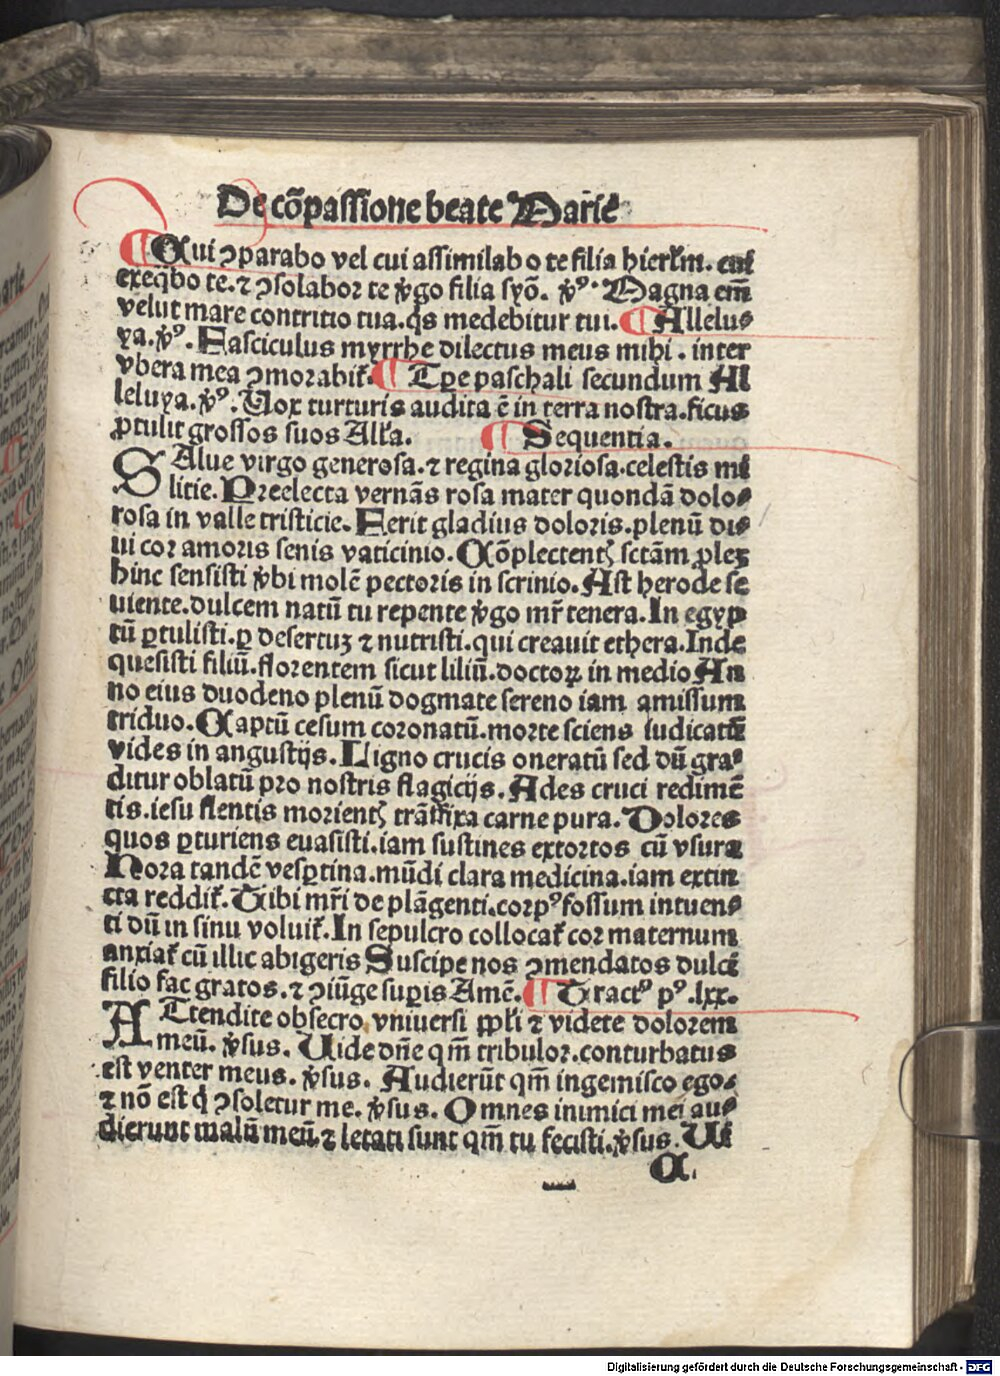 De cõpassione beate Marie
¶ Cui ꝯparabo vel cui assimilabo te filia hierłm. cui
exeq̃bo te. ⁊ ꝯsolabor te v̾go filia syõ. v̾ꝰ. Magna em̃
velut mare contritio tua. q̃s medebitur tui. ¶ Allelu⸗
ya. v̾ꝰ. Fasciculus myrrhe dilectus meus mihi . inter
vbera mea ꝯmorabit̃. ¶ Tꝑe paschali secundum Al
leluya. v̾ꝰ. Uox turturis audita ẽ in terra nostra. ficus
ꝓtulit grossos suos Alła. ¶ Sequentia.
SAlue virgo generosa. ⁊ regina gloriosa. celestis mi
litie. Preelecta vernãs rosa mater quondã dolo⸗
rosa in valle tristicie. Ferit gladius doloris. plenũ di⸗
ui cor amoris senis vaticinio. Cõplectentꝭ sctãm ꝓlez
hinc sensisti v̾bi molẽ pectoris in scrinio. Ast herode se
uiente. dulcem natũ tu repente v̾go mr̃ tenera. In egyp
tũ ꝑtulisti. ꝑ desertuꝫ ⁊ nutristi. qui creauit ethera. Inde
quesisti filiũ. florentem sicut liliũ. doctoꝝ in medio An
no eius duodeno plenũ dogmate sereno iam amissum
triduo. Captũ cesum coronatũ. morte sciens iudicatũ
vides in angustijs. Ligno crucis oneratũ sed dũ gra⸗
ditur oblatũ pro nostris flagicijs. Ades cruci redimẽ
tis. iesu flentis morientꝭ trãsfixa carne pura. Dolores
quos ꝑturiens euasisti. iam sustines extortos cũ vsura
Hora tandẽ vesꝑtina. mũdi clara medicina. iam extin
cta reddit̃. Tibi mr̃i de plãgenti. corpꝰ fossum intuen⸗
ti dũ in sinu voluit̃. In sepulcro collocat̃ cor maternum
anxiat̃ cũ illic abigeris Suscipe nos ꝯmendatos dulci
filio fac gratos. ⁊ ꝯiũge suꝑis Amẽ. ¶ Tractꝰ pꝰ. lxx.
ATtendite obsecro vniuersi ꝓpłi ⁊ videte dolorem
meũ. v̾sus. Uide dñe qm̃ tribulor. conturbatus
est venter meus. v̾sus. Audierũt qm̃ ingemisco ego⸗
⁊ nõ est q̇ ꝯsoletur me. v̾sus. Omnes inimici mei au⸗
dierunt malũ meũ ⁊ letati sunt qm̃ tu fecisti. v̾sus. Ui
C.
Digitalisierung gefördert durch die Deutsche Forschungsgemeinschaft - DFG